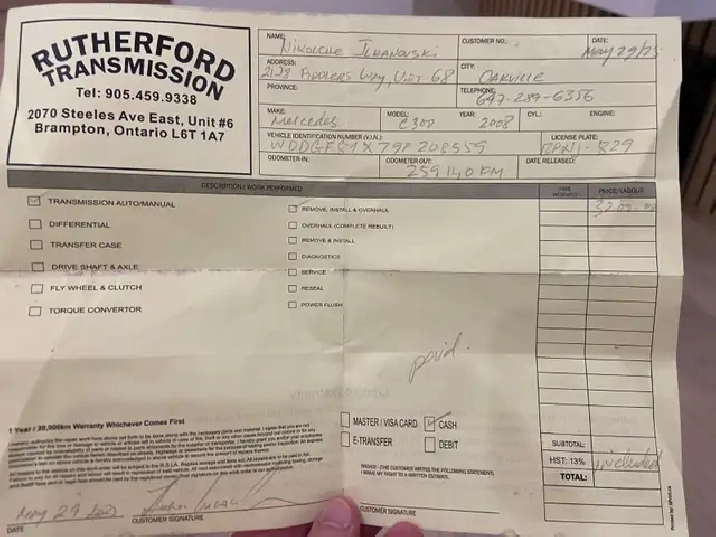 RUTHERFORD
TRANSMISSION
Tel: 905.459.9338
2070 Steeles Ave East, Unit #6
Brampton, Ontario L6T 1A7
NAME: CUSTOMER NO.: DATE: May 29/25
ADDRESS: 2123 FIDDLERS WAY, UNIT 68 CITY: OAKVILLE
PROVINCE: TELEPHONE: 647-289-6356
MAKE: Mercedes MODEL: C300 YEAR: 2008 CYL: ENGINE:
VEHICLE IDENTIFICATION NUMBER (V.I.N.): WDDGF81X79F208559 LICENSE PLATE:
ODOMETER-IN: ODOMETER-OUT: 259140 KM DATE RELEASED:
DESCRIPTION / WORK PERFORMED PRICE/LABOUR
TRANSMISSION AUTO/MANUAL
REMOVE, INSTALL & OVERHAUL
DIFFERENTIAL
OVERHAUL (COMPLETE REBUILT)
TRANSFER CASE
REMOVE & INSTALL
DIAGNOSTICS
DRIVE SHAFT & AXLE
SERVICE
FLY WHEEL & CLUTCH
RESEAL
TORQUE CONVERTOR
POWER FLUSH
paid.
1 Year / 20,000km Warranty Whichever Comes First
MASTER / VISA CARD CASH
E-TRANSFER DEBIT
SUBTOTAL:
HST: 13% included
TOTAL:
WAIVER: (THE CUSTOMER WRITES THE FOLLOWING STATEMENT)
I WAIVE MY RIGHT TO A WRITTEN ESTIMATE.
May 29 2025
DATE CUSTOMER SIGNATURE CUSTOMER SIGNATURE